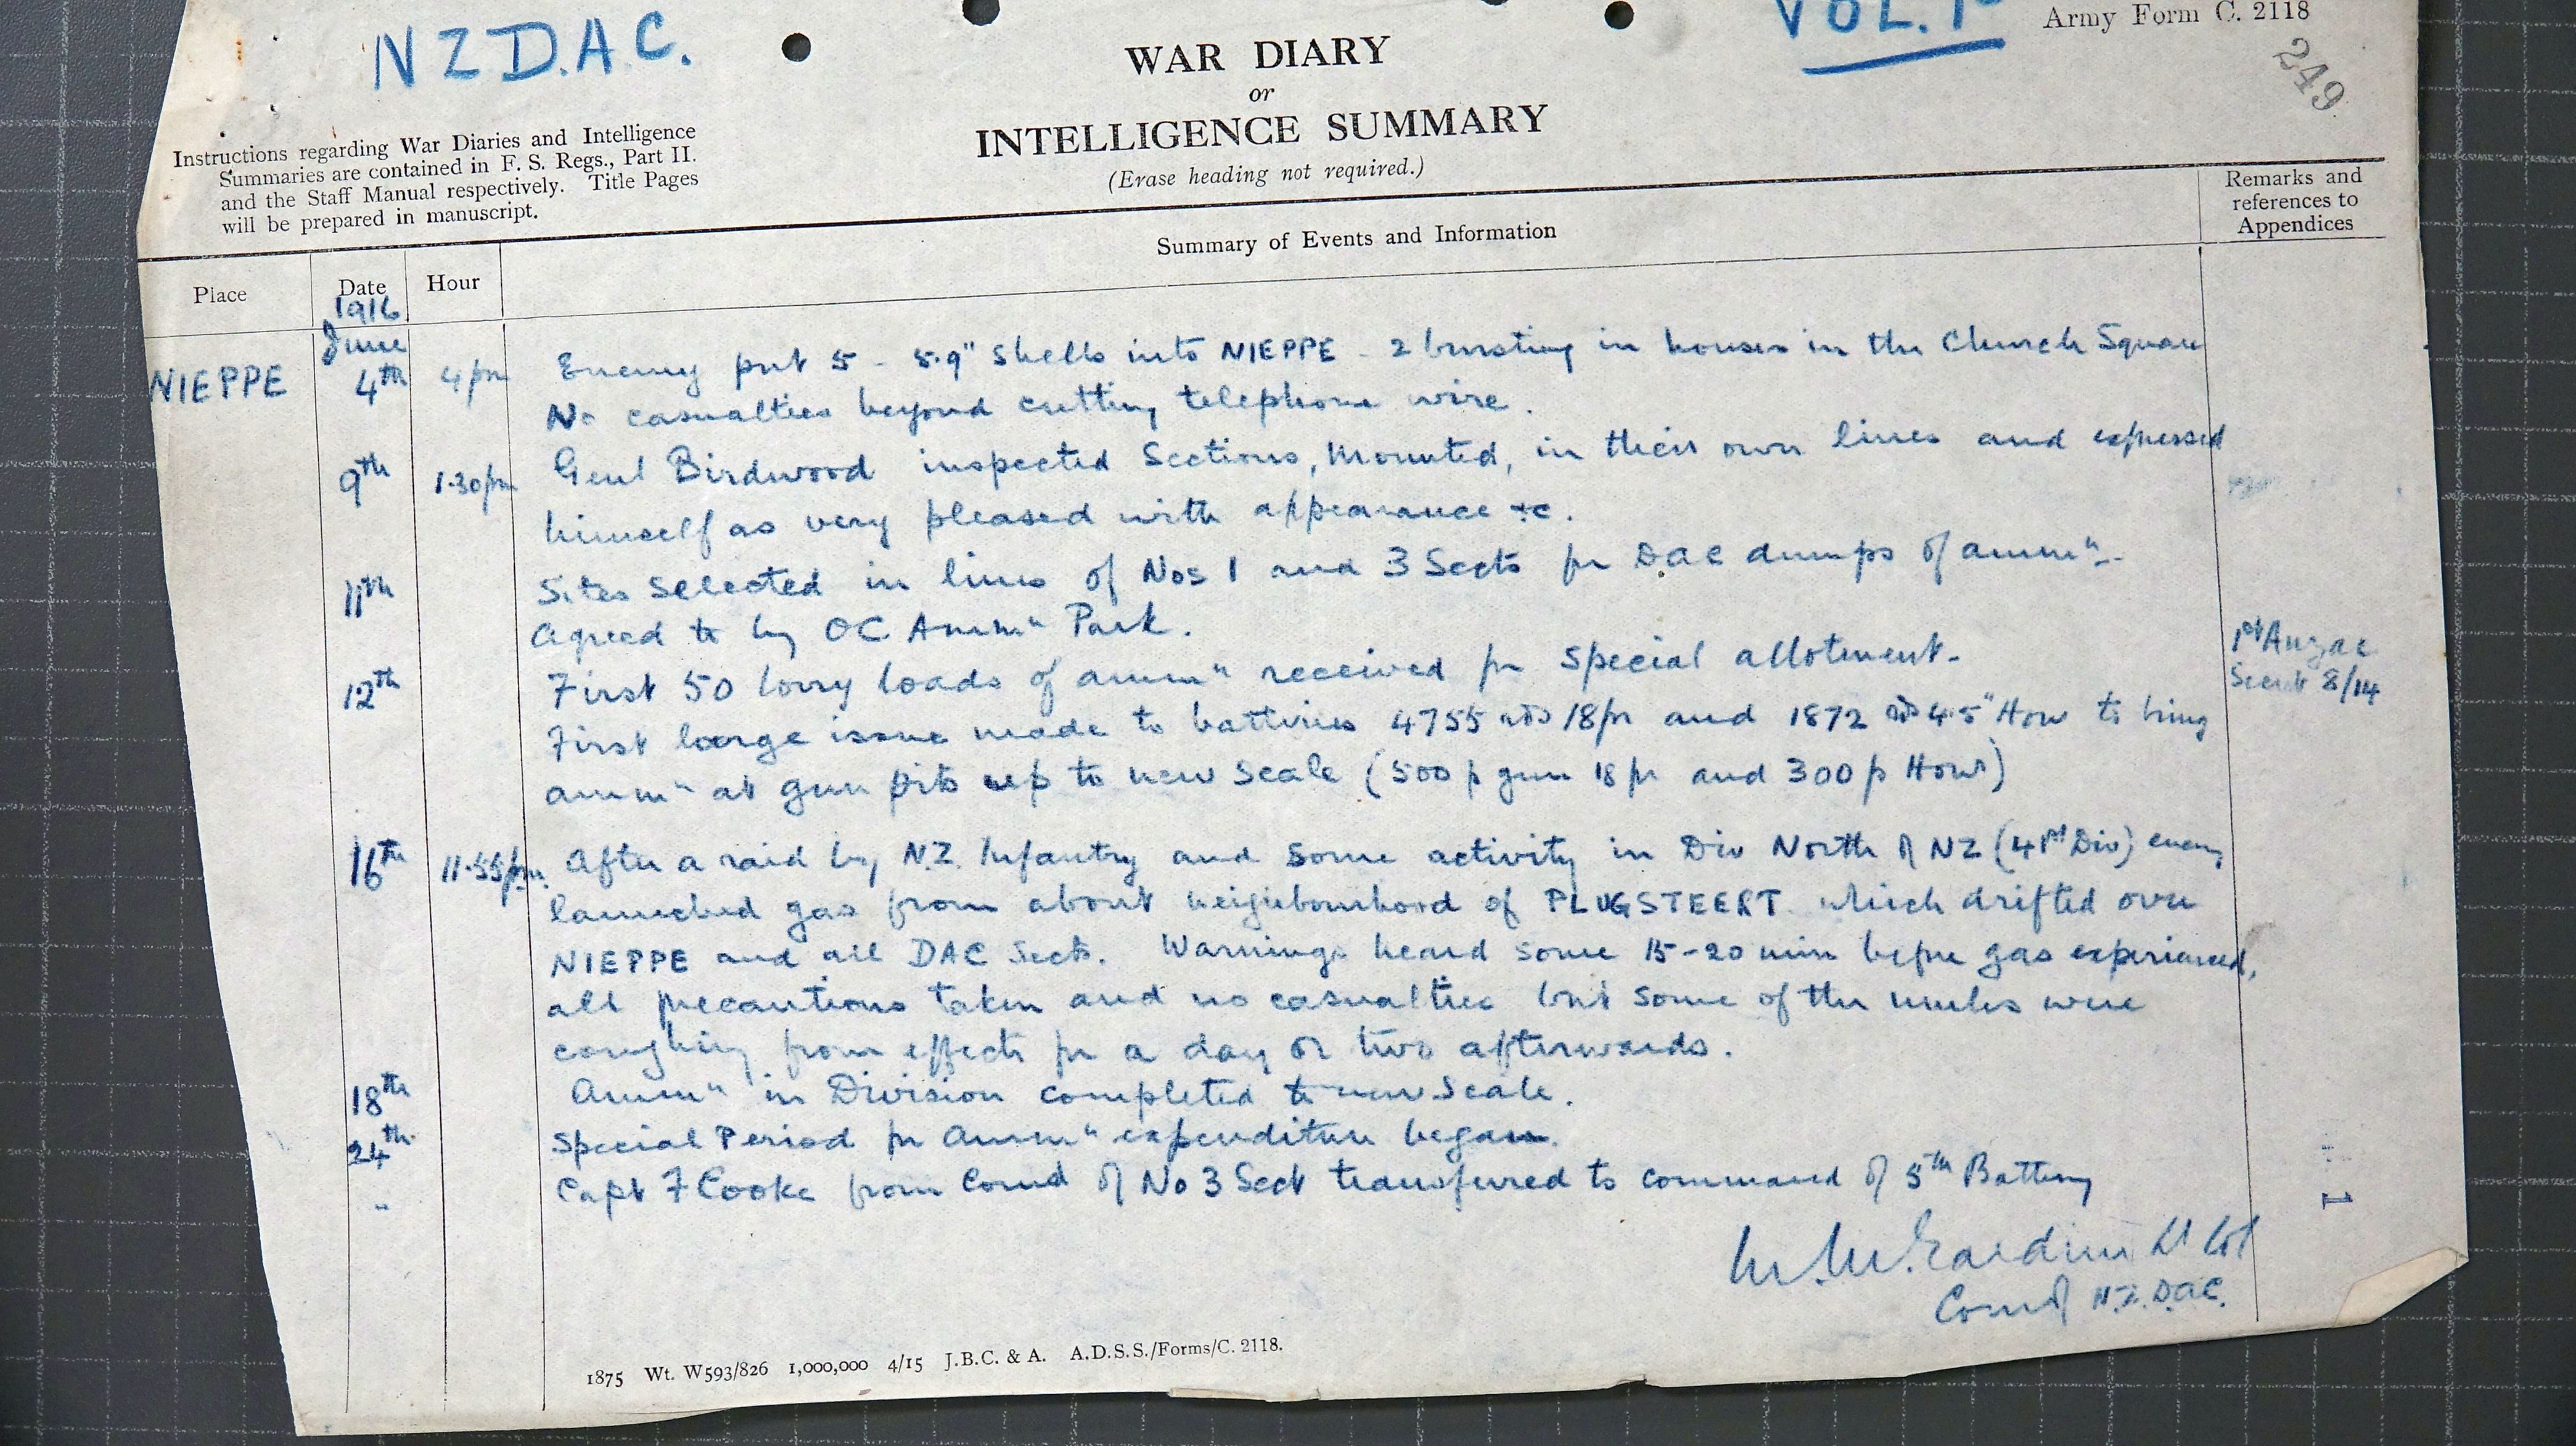 NZ D.A.C.
VOL. 1
Army Form C. 2118
249
WAR DIARY
or
INTELLIGENCE SUMMARY
(Erase heading not required.)
Instructions regarding War Diaries and Intelligence
Summaries are contained in F. S. Regs., Part II.
and the Staff Manual respectively. Title Pages
will be prepared in manuscript.
Place Date Hour Summary of Events and Information Remarks and
references to
Appendices
1916
June
NIEPPE 4th 4pm Enemy put 5 - 5.9" shells into NIEPPE - 2 bursting in houses in the Church Square
No casualties beyond cutting telephone wire.
9th 1.30pm Genl Birdwood inspected Sections, Mounted, in their own lines and expressed
himself as very pleased with appearance &c.
11th Sites selected in lines of Nos 1 and 3 Sects for DAC dumps of ammn.
Agreed to by OC Ammn Park.
12th First 50 lorry loads of ammn received for special allotment. 1st Anzac
Secret 8/14
First large issue made to batteries 4755 rds 18pr and 1872 rds 4.5" How to bring
ammn at gun pits up to new scale (500 p gun 18 pr and 300 p Howr)
16th 11.55pm. After a raid by N.Z. Infantry and some activity in Div North of NZ (41st Div) enemy
launched gas from about neighbourhood of PLUGSTEERT which drifted over
NIEPPE and all DAC Sects. Warnings heard some 15-20 min before gas experienced,
all precautions taken and no casualties but some of the mules were
coughing from effects for a day or two afterwards.
18th Ammn in Division completed to new scale.
24th Special Period for Ammn expenditure began.
" Capt F Cooke from Comd of No 3 Sect transferred to command of 5th Battery
Lt Col
Comd N.Z. DAC.
1
1875 Wt. W593/826 1,000,000 4/15 J.B.C. & A. A.D.S.S./Forms/C. 2118.